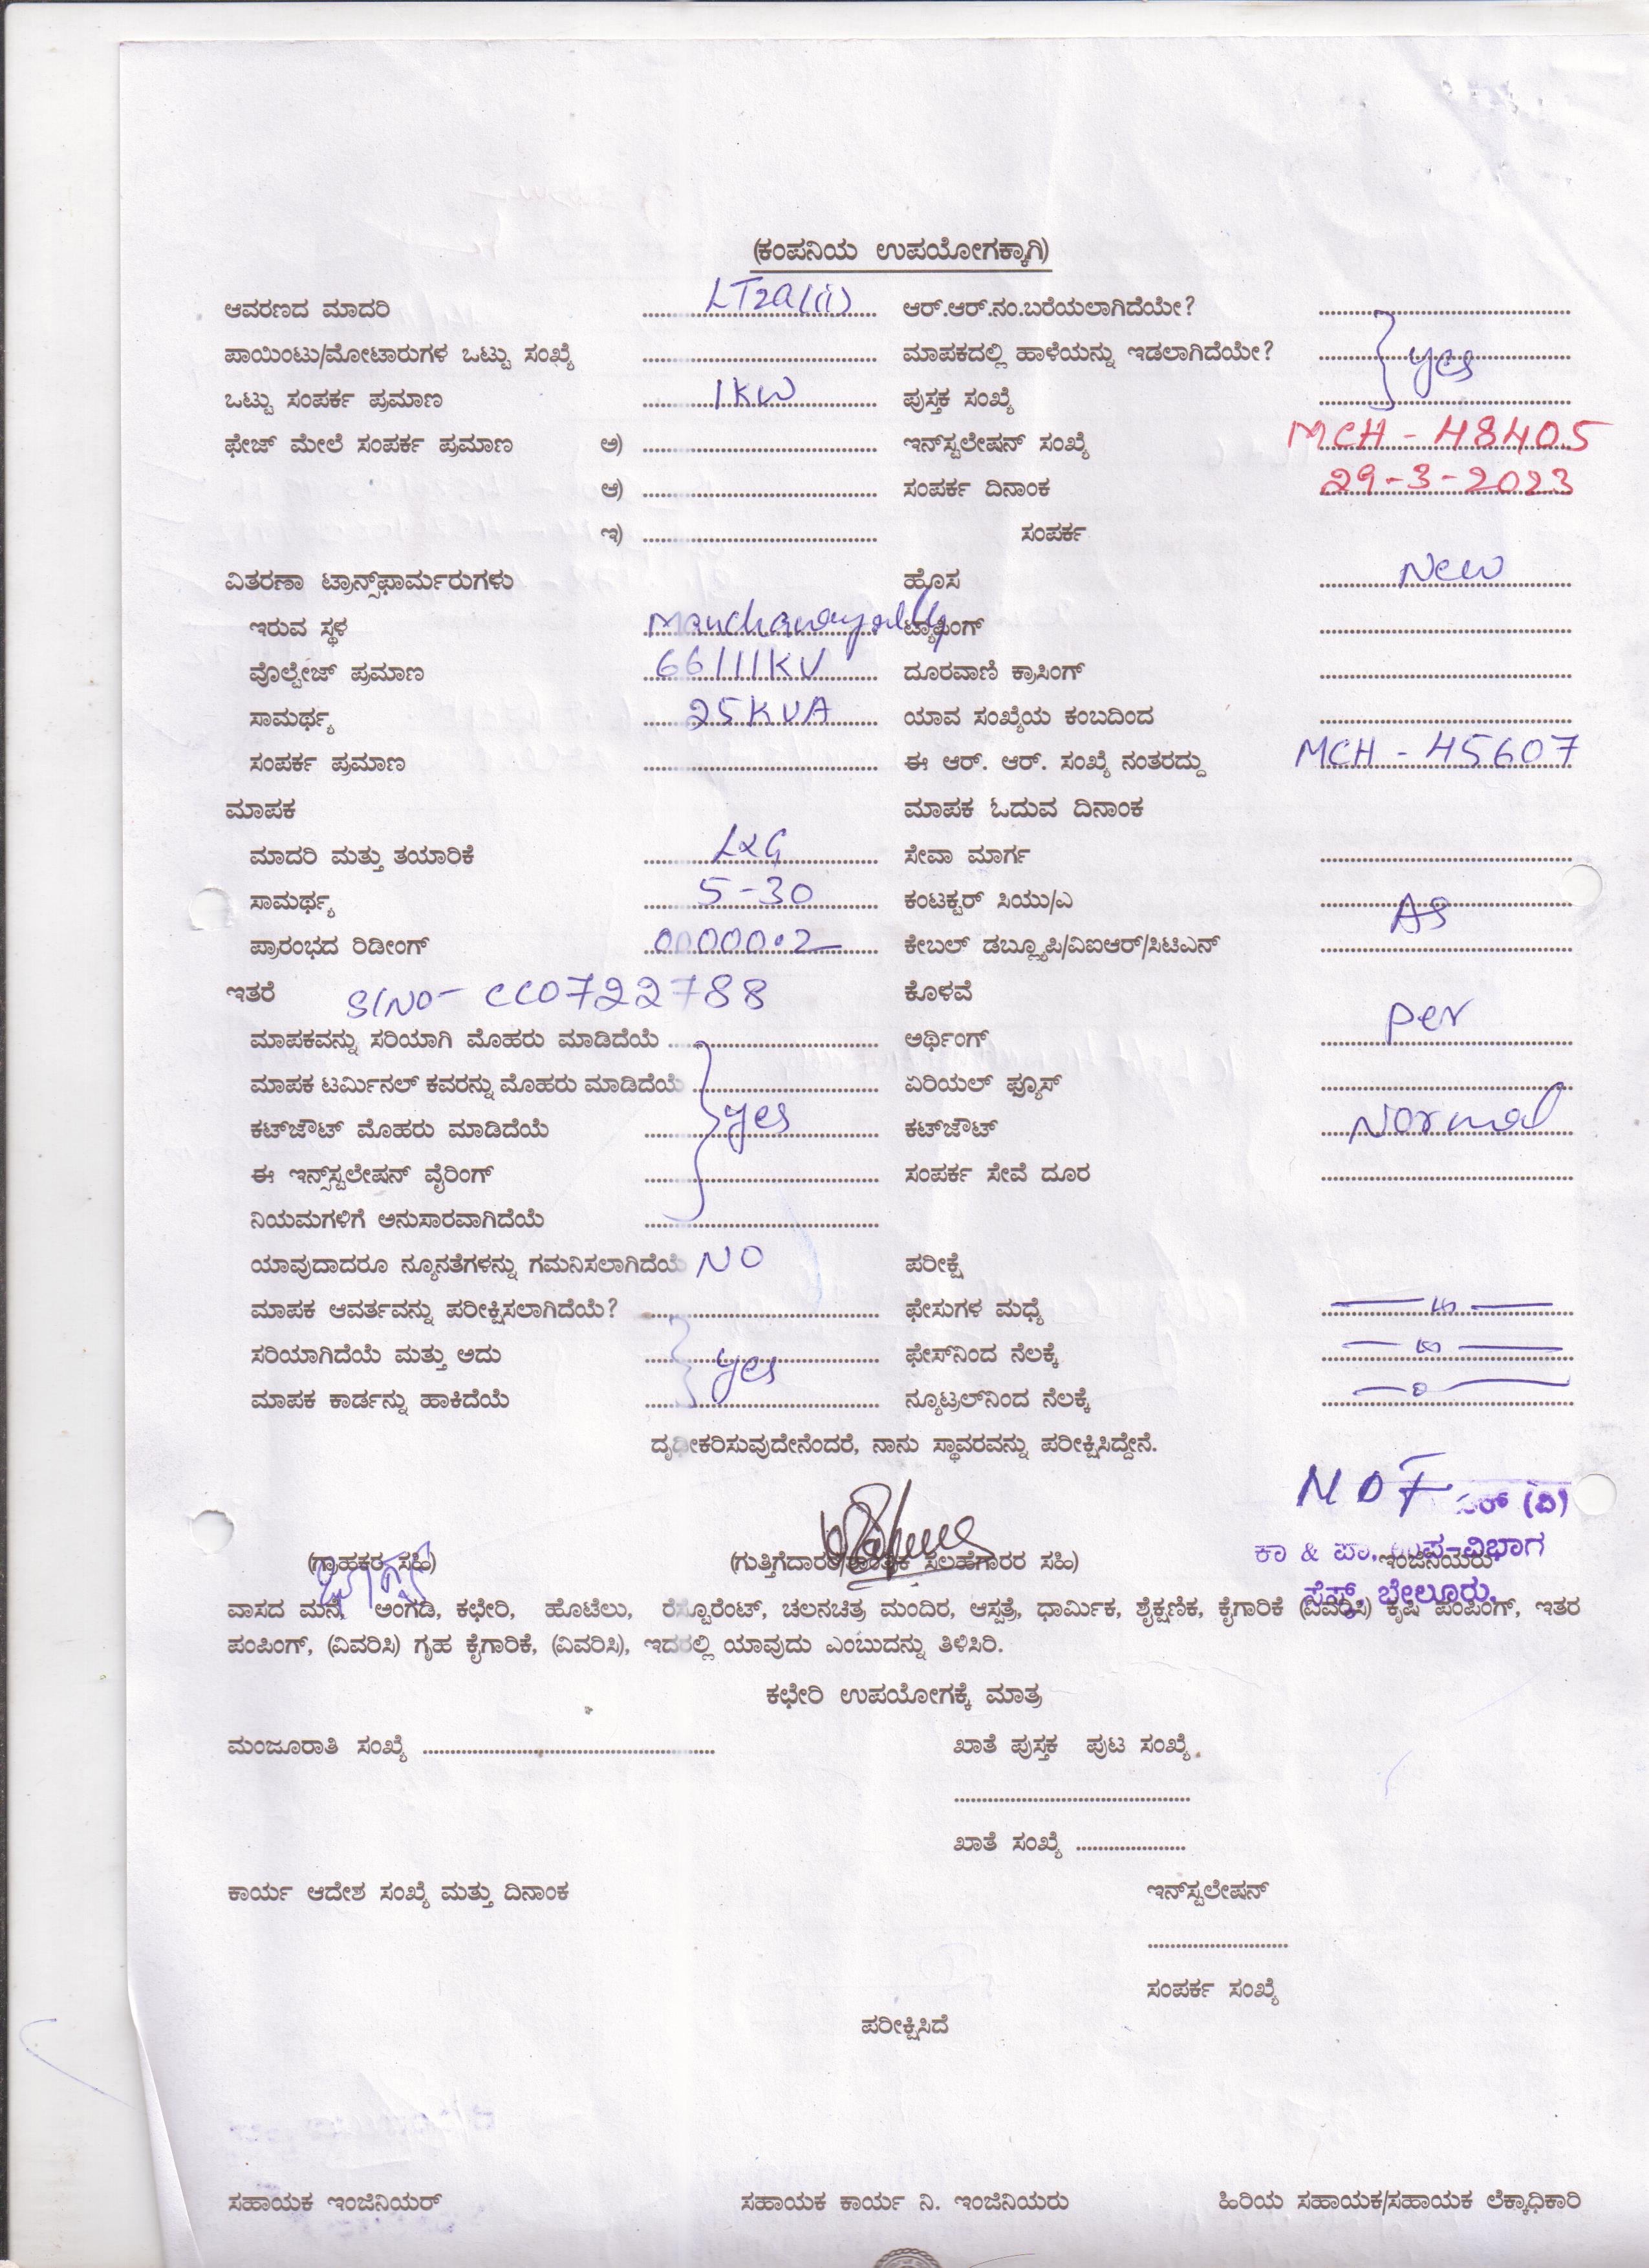 (ಕಂಪನಿಯ ಉಪಯೋಗಕ್ಕಾಗಿ)
ಆವರಣದ ಮಾದರಿ LT2a(ii) ಆರ್.ಆರ್.ನಂ.ಬರೆಯಲಾಗಿದೆಯೇ?
ಪಾಯಿಂಟು/ಮೋಟಾರುಗಳ ಒಟ್ಟು ಸಂಖ್ಯೆ ಮಾಪಕದಲ್ಲಿ ಹಾಳೆಯನ್ನು ಇಡಲಾಗಿದೆಯೇ? yes
ಒಟ್ಟು ಸಂಪರ್ಕ ಪ್ರಮಾಣ 1KW ಪುಸ್ತಕ ಸಂಖ್ಯೆ
ಫೇಜ್ ಮೇಲೆ ಸಂಪರ್ಕ ಪ್ರಮಾಣ ಅ) ಇನ್‌ಸ್ಟಲೇಷನ್ ಸಂಖ್ಯೆ MCH - 48405
ಆ) ಸಂಪರ್ಕ ದಿನಾಂಕ 29-3-2023
ಇ) ಸಂಪರ್ಕ
ವಿತರಣಾ ಟ್ರಾನ್ಸ್‌ಫಾರ್ಮರುಗಳು ಹೊಸ New
ಇರುವ ಸ್ಥಳ ಟ್ಯಾಪಿಂಗ್
ವೊಲ್ಟೇಜ್ ಪ್ರಮಾಣ 66/11KV ದೂರವಾಣಿ ಕ್ರಾಸಿಂಗ್
ಸಾಮರ್ಥ್ಯ 25KVA ಯಾವ ಸಂಖ್ಯೆಯ ಕಂಬದಿಂದ
ಸಂಪರ್ಕ ಪ್ರಮಾಣ ಈ ಆರ್. ಆರ್. ಸಂಖ್ಯೆ ನಂತರದ್ದು MCH - 45607
ಮಾಪಕ ಮಾಪಕ ಓದುವ ದಿನಾಂಕ
ಮಾದರಿ ಮತ್ತು ತಯಾರಿಕೆ L&G ಸೇವಾ ಮಾರ್ಗ
ಸಾಮರ್ಥ್ಯ 5-30 ಕಂಟಕ್ಟರ್ ಸಿಯು/ಎ As
ಪ್ರಾರಂಭದ ರಿಡೀಂಗ್ 00000.2 ಕೇಬಲ್ ಡಬ್ಲ್ಯೂಪಿ/ವಿಐಆರ್/ಸಿಟಿಎನ್
ಇತರೆ Sl NO- CC0722788 ಕೊಳವೆ
ಮಾಪಕವನ್ನು ಸರಿಯಾಗಿ ಮೊಹರು ಮಾಡಿದೆಯೆ ಅರ್ಥಿಂಗ್ per
ಮಾಪಕ ಟರ್ಮಿನಲ್ ಕವರನ್ನು ಮೊಹರು ಮಾಡಿದೆಯೆ ಏರಿಯಲ್ ಫ್ಯೂಸ್
ಕಟ್‌ಜೌಟ್ ಮೊಹರು ಮಾಡಿದೆಯೆ yes ಕಟ್‌ಜೌಟ್ Normal
ಈ ಇನ್ಸ್‌ಸ್ಟಲೇಷನ್ ವೈರಿಂಗ್ ಸಂಪರ್ಕ ಸೇವೆ ದೂರ
ನಿಯಮಗಳಿಗೆ ಅನುಸಾರವಾಗಿದೆಯೆ
ಯಾವುದಾದರೂ ನ್ಯೂನತೆಗಳನ್ನು ಗಮನಿಸಲಾಗಿದೆಯೆ NO ಪರೀಕ್ಷೆ
ಮಾಪಕ ಆವರ್ತವನ್ನು ಪರೀಕ್ಷಿಸಲಾಗಿದೆಯೆ? ಫೇಸುಗಳ ಮಧ್ಯೆ
ಸರಿಯಾಗಿದೆಯೆ ಮತ್ತು ಅದು yes ಫೇಸ್‌ನಿಂದ ನೆಲಕ್ಕೆ
ಮಾಪಕ ಕಾರ್ಡನ್ನು ಹಾಕಿದೆಯೆ ನ್ಯೂಟ್ರಲ್‌ನಿಂದ ನೆಲಕ್ಕೆ
ದೃಢೀಕರಿಸುವುದೇನೆಂದರೆ, ನಾನು ಸ್ಥಾವರವನ್ನು ಪರೀಕ್ಷಿಸಿದ್ದೇನೆ.
(ವಿ)
(ಗ್ರಾಹಕರ ಸಹಿ) ಸಲಹೆಗಾರರ ಸಹಿ) ಇಂಜಿನಿಯರು
ಕಾ & ಪಾ. ಉಪ-ವಿಭಾಗ
ಸೆಸ್ಕ್, ಬೇಲೂರು.
ವಾಸದ ಮನೆ, ಅಂಗಡಿ, ಕಛೇರಿ, ಹೊಟೆಲು, ರೆಸ್ಟೂರೆಂಟ್, ಚಲನಚಿತ್ರ ಮಂದಿರ, ಆಸ್ಪತ್ರೆ, ಧಾರ್ಮಿಕ, ಶೈಕ್ಷಣಿಕ, ಕೈಗಾರಿಕೆ (ವಿವರಿಸಿ) ಕೃಷಿ ಪಂಪಿಂಗ್, ಇತರ
ಪಂಪಿಂಗ್, (ವಿವರಿಸಿ) ಗೃಹ ಕೈಗಾರಿಕೆ, (ವಿವರಿಸಿ), ಇದರಲ್ಲಿ ಯಾವುದು ಎಂಬುದನ್ನು ತಿಳಿಸಿರಿ.
ಕಛೇರಿ ಉಪಯೋಗಕ್ಕೆ ಮಾತ್ರ
ಮಂಜೂರಾತಿ ಸಂಖ್ಯೆ ಖಾತೆ ಪುಸ್ತಕ ಪುಟ ಸಂಖ್ಯೆ
ಖಾತೆ ಸಂಖ್ಯೆ
ಕಾರ್ಯ ಆದೇಶ ಸಂಖ್ಯೆ ಮತ್ತು ದಿನಾಂಕ ಇನ್‌ಸ್ಟಲೇಷನ್
ಸಂಪರ್ಕ ಸಂಖ್ಯೆ
ಪರೀಕ್ಷಿಸಿದೆ
ಸಹಾಯಕ ಇಂಜಿನಿಯರ್ ಸಹಾಯಕ ಕಾರ್ಯ ನಿ. ಇಂಜಿನಿಯರು ಹಿರಿಯ ಸಹಾಯಕ/ಸಹಾಯಕ ಲೆಕ್ಕಾಧಿಕಾರಿ